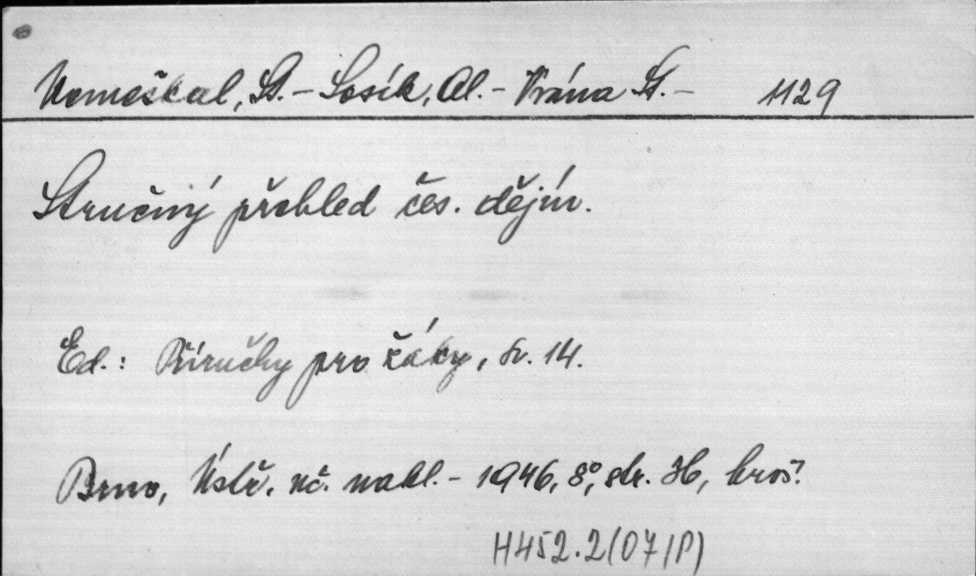 Nemeškal, St. - Sosík, Al. - Vrána St. - 1129
Stručný přehled čes. dějin.
Ed.: Příručky pro žáky, sv. 14.
Brno, Ústř. uč. nakl. - 1946, 8°, str. 36, brož.
H452.2(07)(P)